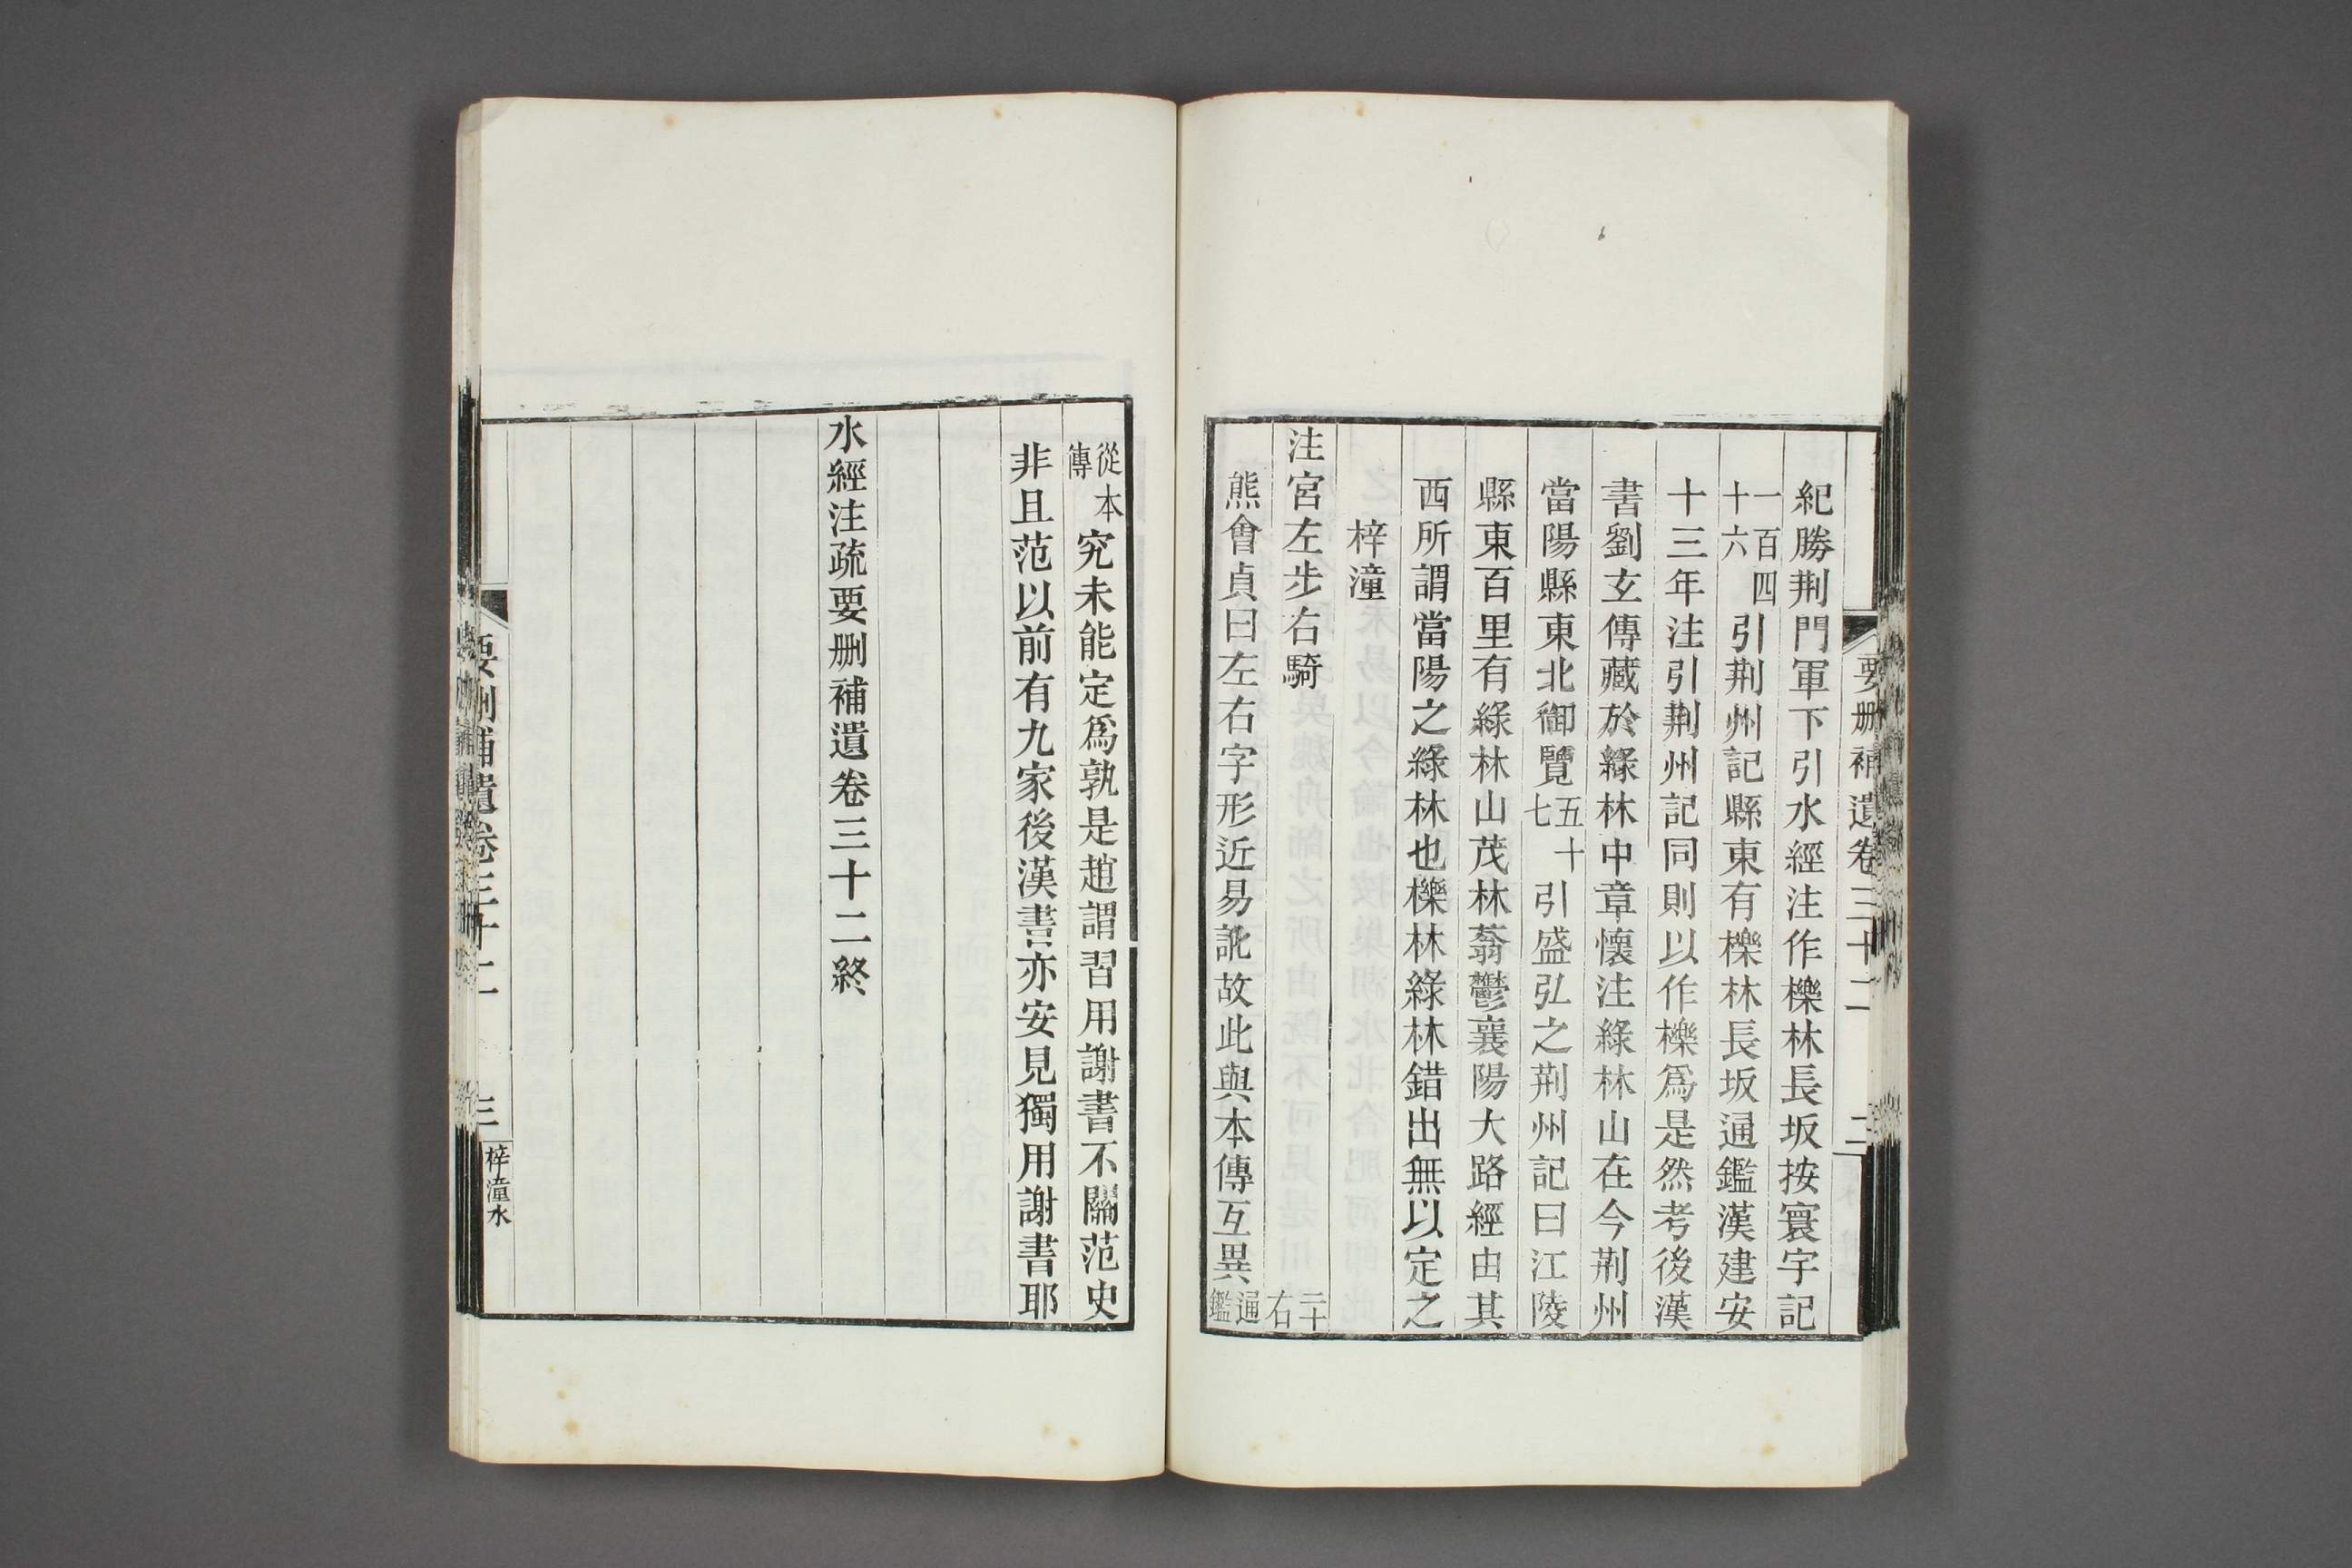 要刪補遺卷三十二 二
紀勝荆門軍下引水經注作櫟林長坂按寰宇記
一百四十六引荆州記縣東有櫟林長坂通鑑漢建安
十三年注引荆州記同則以作櫟爲是然考後漢
書劉玄傳藏於綠林中章懷注綠林山在今荆州
當陽縣東北御覽五十七引盛弘之荆州記曰江陵
縣東百里有綠林山茂林蓊鬱襄陽大路經由其
西所謂當陽之綠林也櫟林綠林錯出無以定之
梓潼
注宮左步右騎 二十右
熊會貞曰左右字形近易訛故此與本傳互異通鑑
從本傳究未能定爲孰是趙謂習用謝書不關范史
非且范以前有九家後漢書亦安見獨用謝書耶
水經注疏要刪補遺卷三十二終
要刪補遺卷三十二 三 梓潼水